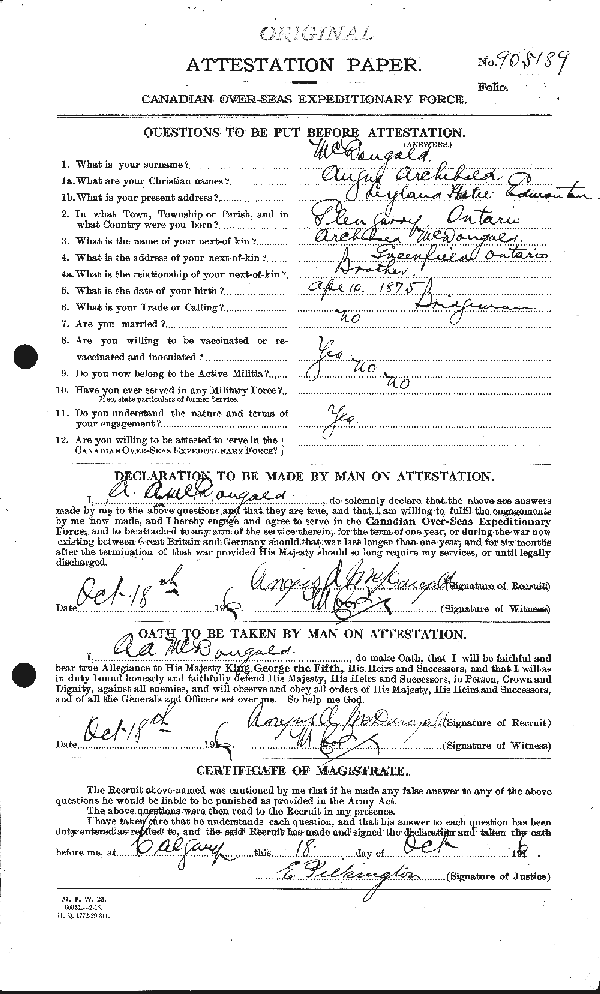 ORIGINAL
ATTESTATION PAPER.
No. 908189
Folio.
CANADIAN OVER-SEAS EXPEDITIONARY FORCE.
QUESTIONS TO BE PUT BEFORE ATTESTATION.
(ANSWERS)
1. What is your surname? McDougald.
1a. What are your Christian names? Angus Archibald
1b. What is your present address? Leyland Hotel Edmonton
2. In what Town, Township or Parish, and in
what Country were you born? Glengarry Ontario
3. What is the name of your next-of-kin? McDougald
4. What is the address of your next-of-kin? Greenfield Ontario
4a. What is the relationship of your next-of-kin? Brother
5. What is the date of your birth? Apr 10. 1875
6. What is your Trade or Calling?
7. Are you married? no
8. Are you willing to be vaccinated or re-
vaccinated and inoculated? Yes
9. Do you now belong to the Active Militia? no
10. Have you ever served in any Military Force? no
If so, state particulars of former Service.
11. Do you understand the nature and terms of
your engagement? Yes
12. Are you willing to be attested to serve in the
CANADIAN OVER-SEAS EXPEDITIONARY FORCE?
DECLARATION TO BE MADE BY MAN ON ATTESTATION.
I, A. A. McDougald, do solemnly declare that the above are answers
made by me to the above questions and that they are true, and that I am willing to fulfil the engagements
by me now made, and I hereby engage and agree to serve in the Canadian Over-Seas Expeditionary
Force, and to be attached to any arm of the service therein, for the term of one year, or during the war now
existing between Great Britain and Germany should that war last longer than one year, and for six months
after the termination of that war provided His Majesty should so long require my services, or until legally
discharged.
Angus A McDougald (Signature of Recruit)
Date Oct 18th 1916 (Signature of Witness)
OATH TO BE TAKEN BY MAN ON ATTESTATION.
I, A A McDougald, do make Oath, that I will be faithful and
bear true Allegiance to His Majesty King George the Fifth, His Heirs and Successors, and that I will as
in duty bound honestly and faithfully defend His Majesty, His Heirs and Successors, in Person, Crown and
Dignity, against all enemies, and will observe and obey all orders of His Majesty, His Heirs and Successors,
and of all the Generals and Officers set over me. So help me God.
Angus A McDougald (Signature of Recruit)
Date Oct 18th 1916 (Signature of Witness)
CERTIFICATE OF MAGISTRATE.
The Recruit above-named was cautioned by me that if he made any false answer to any of the above
questions he would be liable to be punished as provided in the Army Act.
The above questions were then read to the Recruit in my presence.
I have taken care that he understands each question, and that his answer to each question has been
duly entered as replied to, and the said Recruit has made and signed the declaration and taken the oath
before me, at Calgary this 18 day of Oct 1916
E Pilkington (Signature of Justice)
M. F. W. 23.